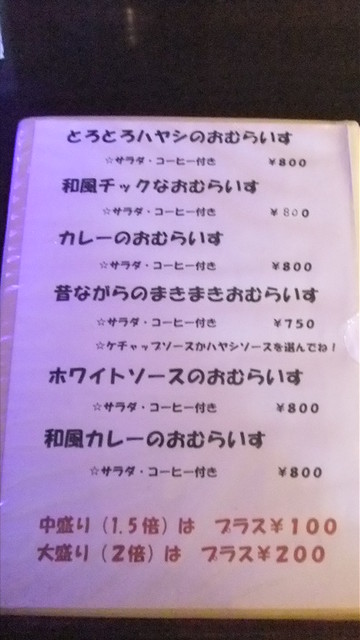 とろとろハヤシのおむらいす
☆サラダ・コーヒー付き ￥８００
和風チックなおむらいす
☆サラダ・コーヒー付き ￥８００
カレーのおむらいす
☆サラダ・コーヒー付き ￥８００
昔ながらのまきまきおむらいす
☆サラダ・コーヒー付き ￥７５０
☆ケチャップソースかハヤシソースを選んでね！
ホワイトソースのおむらいす
☆サラダ・コーヒー付き ￥８００
和風カレーのおむらいす
☆サラダ・コーヒー付き ￥８００
中盛り（１.５倍）は プラス￥１００
大盛り（２倍）は プラス￥２００